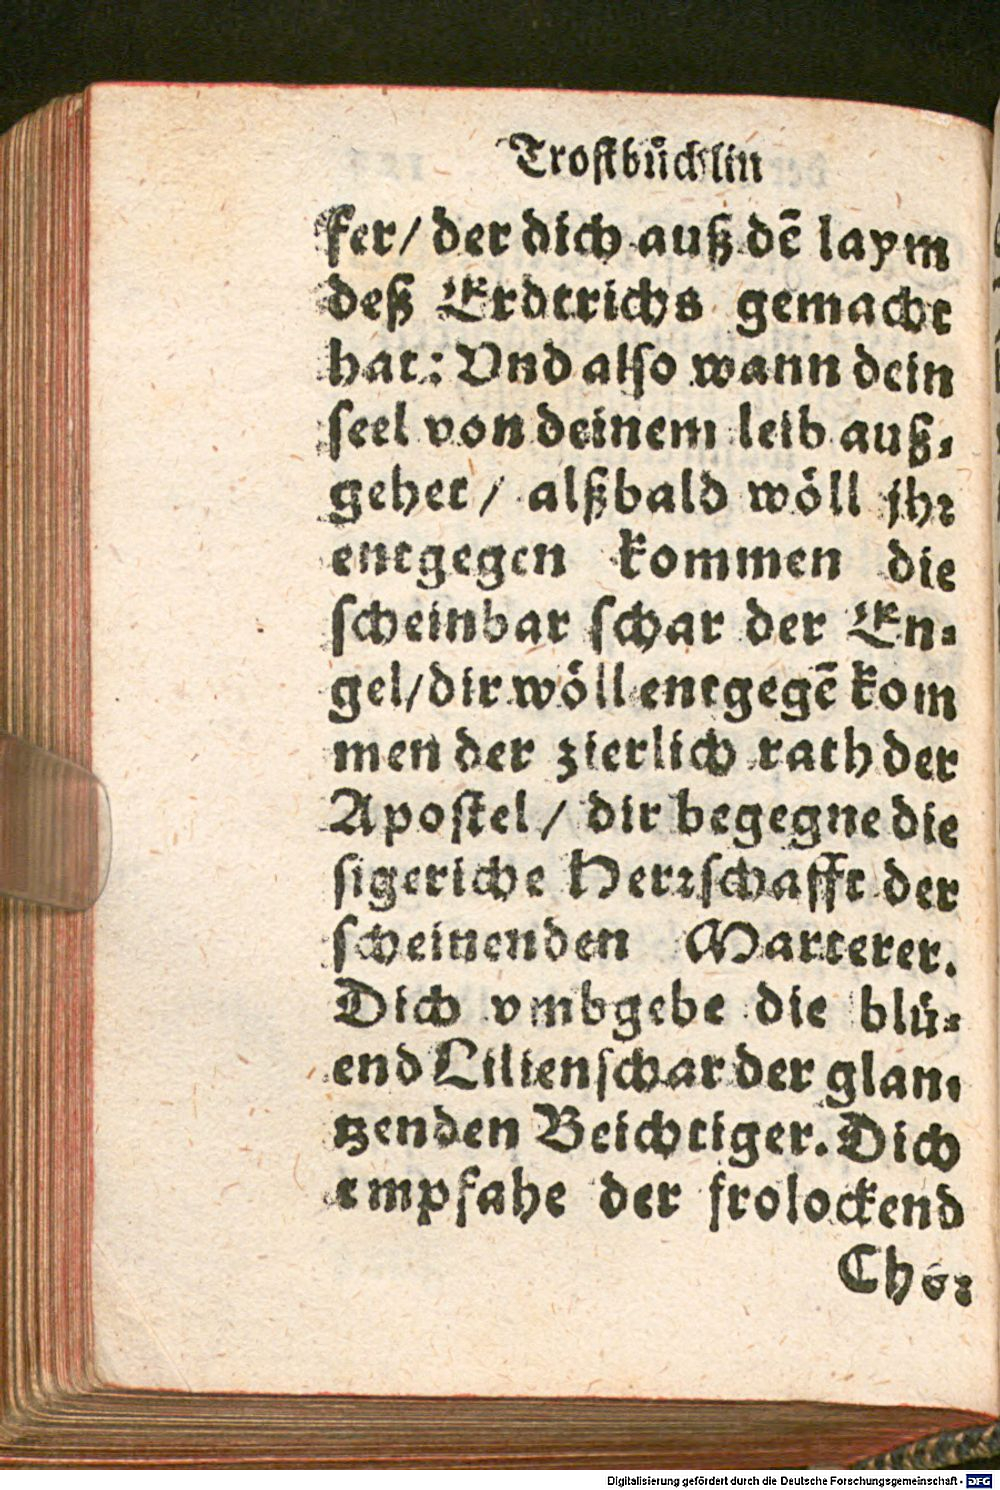 Trostbüchlin
fer/ der dich auß dē laym
deß Erdtrichs gemacht
hat: Vnd also wann dein
seel von deinem leib auß-
gehet/ alßbald wöll jhr
entgegen kommen die
scheinbar schar der En-
gel/ dir wöll entgegē kom
men der zierlich rath der
Apostel/ dir begegne die
sigeriche Herrschafft der
scheinenden Marterer.
Dich vmbgebe die blü-
end Lilienschar der glan-
tzenden Beichtiger. Dich
empfahe der frolockend
Chor
Digitalisierung gefördert durch die Deutsche Forschungsgemeinschaft - DFG